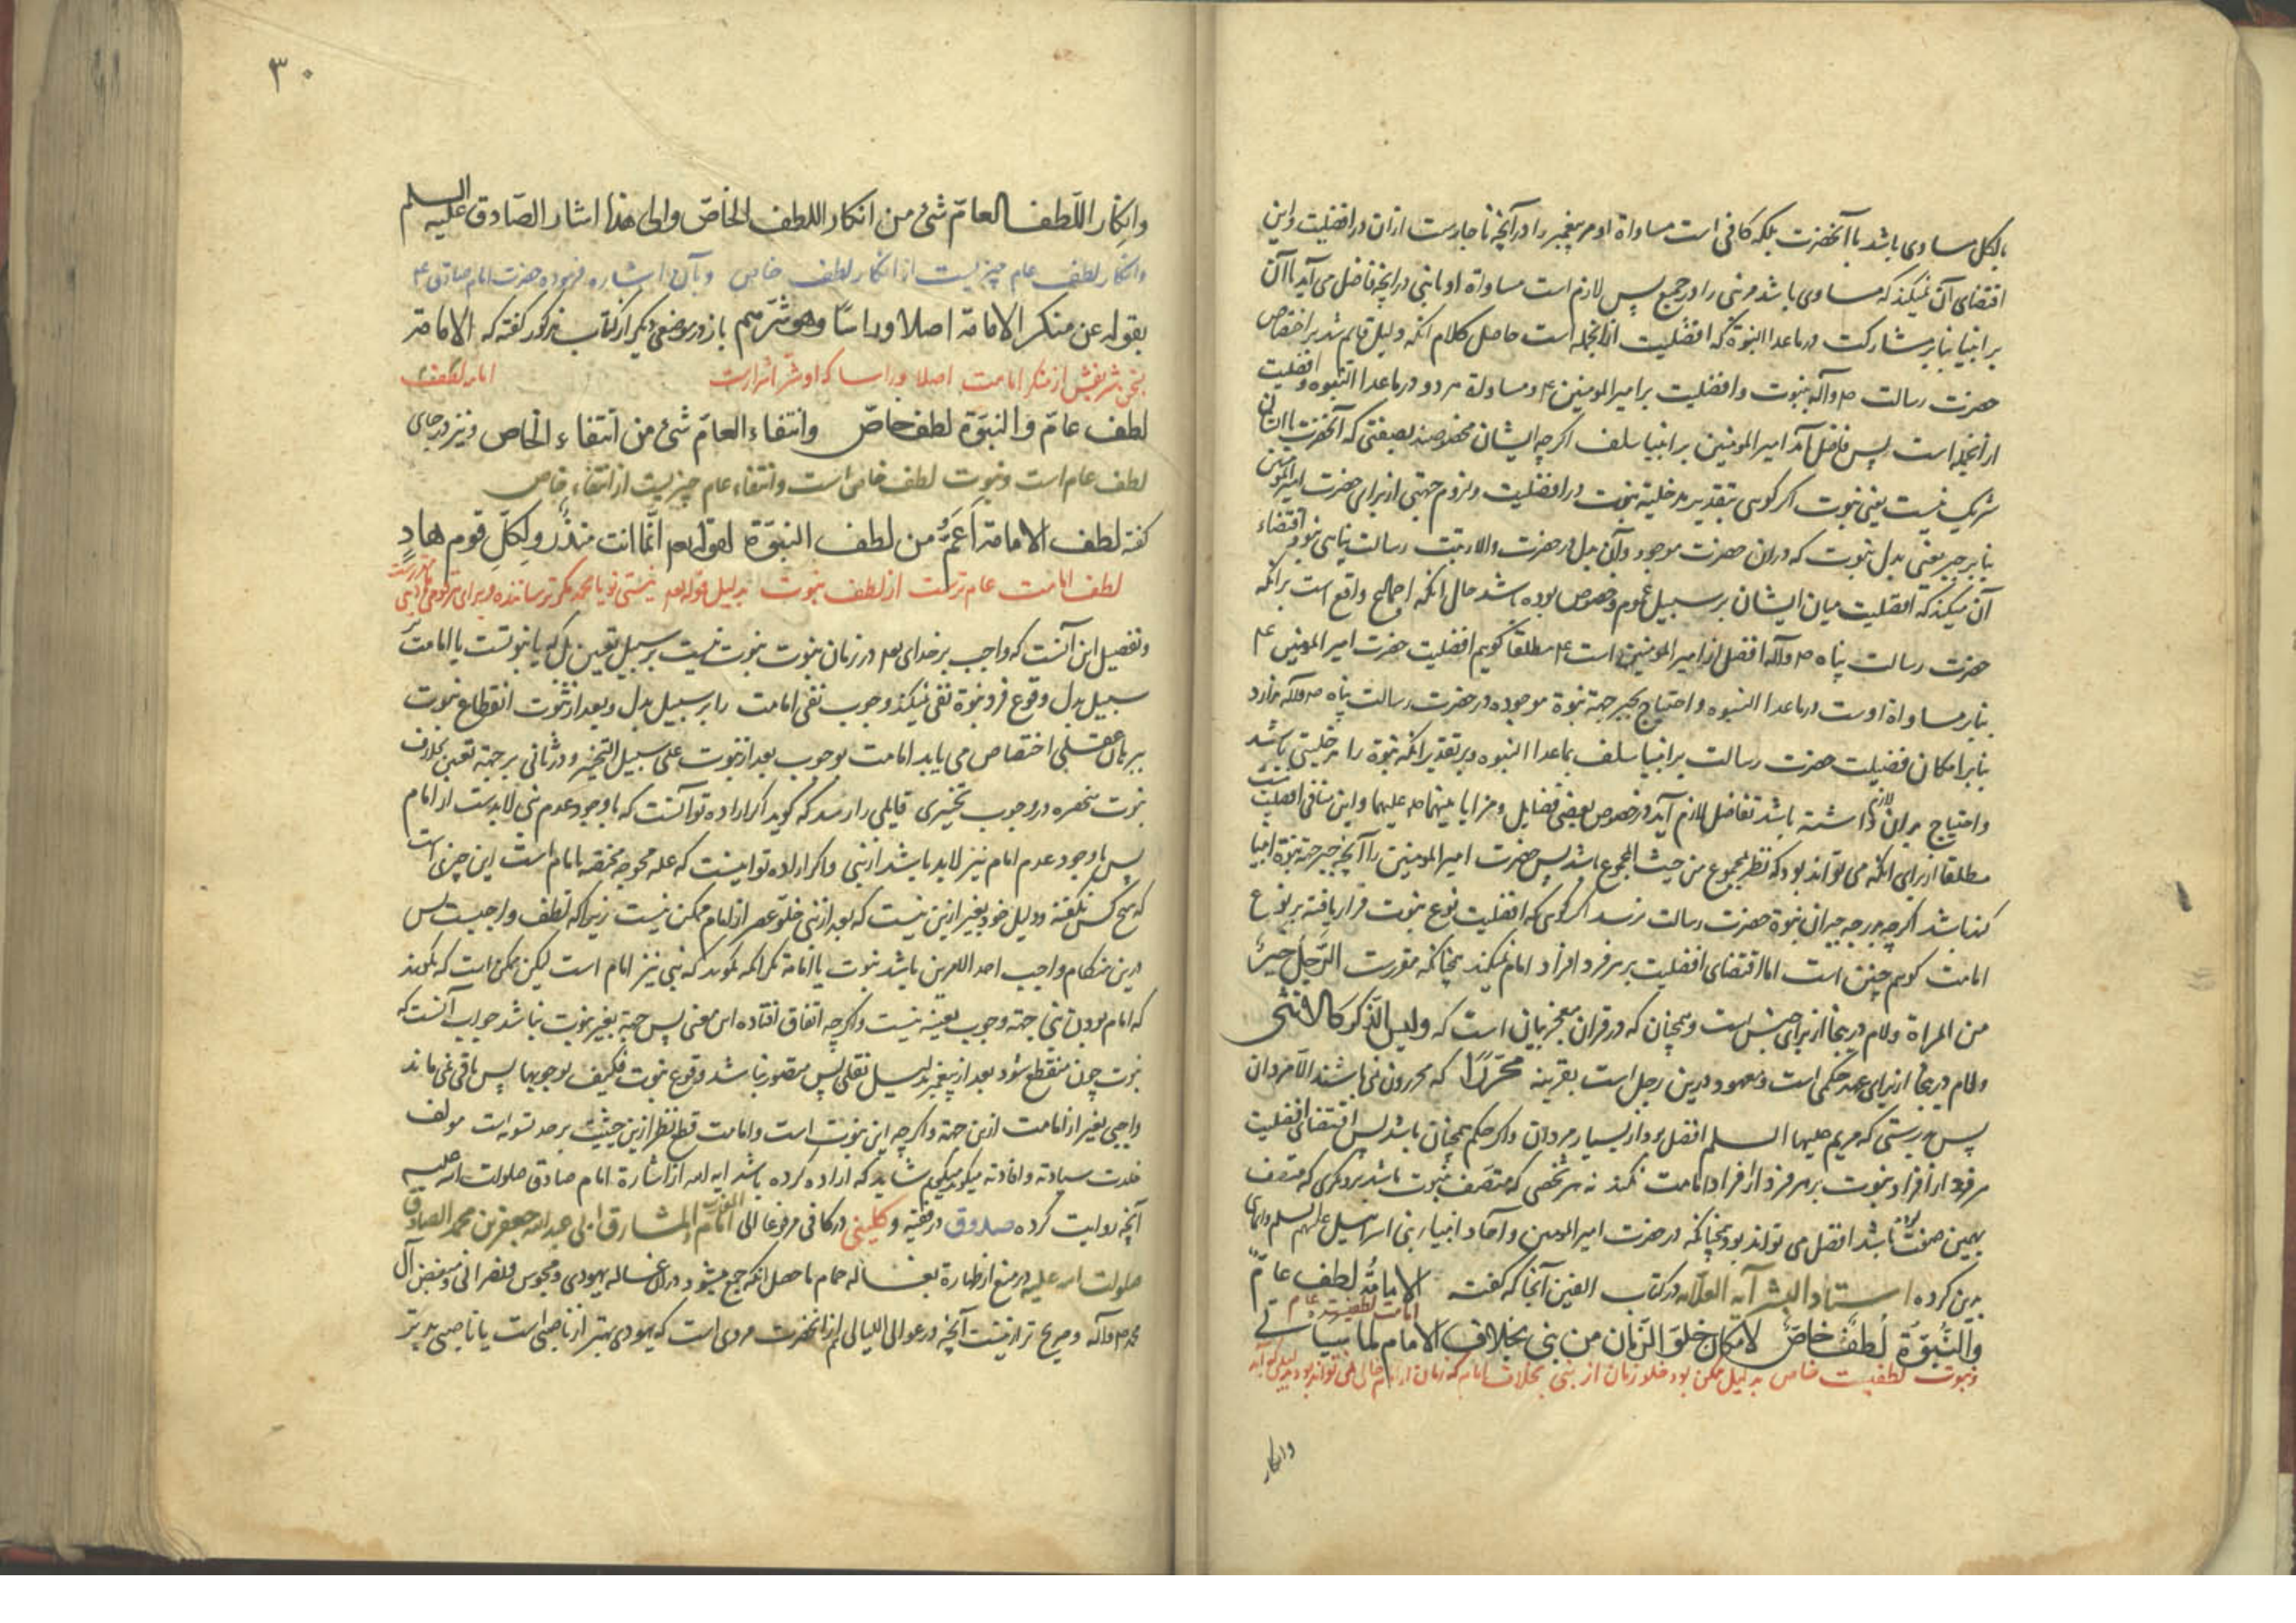 بالکل مساوی باشد با آنحضرت بلکه کافی است مساواة او مر پیغمبر را در آنچه ناچارست ازان در افضلیت و این
اقتضای آن نمیکند که مساوی باشد مر نبی را در جمیع پس لازم است مساواة او با نبی در آنچه فاضل می آید با آن
بر انبیا بنابر مشارکت در ماعدا النبوة که افضلیت از آنجمله است حاصل کلام انکه دلیل قایم شد بر اختصاص
حضرت رسالت ص وآله بنبوت وافضلیت بر امیر المومنین ع ومساواة هر دو در ماعدا النبوه وافضلیت
از آنجمله است پس فاضل آمد امیر المومنین بر انبیا سلف اگر چه ایشان مخصوصند بصفتی که آنحضرت با ایشان
شریک نیست یعنی نبوت اگر گوئی بتقدیر مدخلیة نبوت در افضلیت ولزوم جهتی از برای حضرت امیر المومنین
بنابر جبر یعنی بدل نبوت که دران حضرت موجود وآن بدل در حضرت والا رتبت رسالت پناهی نبود اقتضاء
آن میکند که افضلیت میان ایشان بر سبیل عموم وخصوص بوده باشد حال انکه اجماع واقع است بر انکه
حضرت رسالت پناه ص وآله افضل از امیر المومنین است ع مطلقا گویم افضلیت حضرت امیر المومنین ع
بنابر مساواة اوست در ماعدا النبوه واحتیاج بجبر جهة نبوة موجوده در حضرت رسالت پناه ص وآله ندارد
بنابر امکان فضیلت حضرت رسالت بر انبیا سلف بماعدا النبوه وبر تقدیر انکه نبوة را مدخلیتی باشد
واحتیاج بران داشته باشد تفاضل لازم آید در خصوص بعضی فضایل ومزایا بینهما ص علیهما واین منافی افضلیت نیست
مطلقا از برای انکه می تواند بود که نظر بمجموع من حیث المجموع باشد پس حضرت امیر المومنین را آنچه جبر جهة نبوة انبیا
کند باشد اگر چه بدرجه جبران نبوة حضرت رسالت نرسد اگر گوئی که افضلیت نوع نبوت قرار یافته بر نوع
امامت گویم چنین است اما اقتضای افضلیت بر هر فرد افراد امام نمیکند چنانکه مقررست الرجل خیر
من المراة ولام درینجا از برای جنس است وهمچنان که در قران معجز بیان است که ولیس الذکر کالانثی
ولام درینجا از برای عهد حکمی است ومعهود درین رجل است بقرینه محررا که محررون نمی باشند الا مردان
پس بدرستی که مریم علیها السلم افضل بود از بسیار مردان واگر حکم همچنان باشد پس اقتضای افضلیت
هر فرد از افراد نبوت بر هر فرد از افراد امامت نکند نه هر شخصی که متصف بنبوت باشد بر دیگری که متصف
بهمین صفت نباشد افضل می تواند بود چنانکه در حضرت امیر المومنین وآحاد انبیاء بنی اسرائیل علیهم السلم وایمای
بدین کرده استاد البشر آیه الله العلامه در کتاب الفین آنجا که گفته الامامة لطف عامّ
امامت لطفیست عام
والنبوّة لطف خاصّ لامکان خلو الزمان من نبی بخلاف الامام لما سیاتی
ونبوت لطفیست خاص بدلیل ممکن بود خلو زمان از نبی بخلاف امام که زمان از امام خالی نمی تواند بود
وانکار
٣٠
وانکار اللطف العامّ شیء من انکار اللطف الخاصّ والی هذا اشار الصّادق علیه السلم
وانکار لطف عام چیزیست از انکار لطف خاص وبآن اشاره فرموده حضرت امام صادق ع
بقوله عن منکر الامامة اصلا وراسا وهو شرّهم باز در موضعی دیگر از کتاب مذکور گفته که الامامة
بسخن شریفش از منکر امامت اصلا وراسا که او شر اشرارست امامت لطف
لطف عامّ والنبوة لطف خاصّ وانتفاء العامّ شیء من انتفاء الخاص ونیز در جای
لطف عام است ونبوت لطف خاص است وانتفاء عام چیزیست از انتفاء خاص
گفته لطف الامامة اعمّ من لطف النبوّة لقوله تعم انما انت منذر ولکل قوم هاد
لطف امامت عام ترست از لطف نبوت بدلیل قوله تعم نیستی تو یا محمد مگر ترساننده وبرای هر قومی
وتفصیل این آنست که واجب بر خدای تعم در زمان نبوت نبوت نیست بر سبیل تعین بلکه یا نبوتست یا امامت بر
سبیل بدل وقوع فرد نبوة نفی نمیکند وجوب نفی امامت را بر سبیل بدل وبعد از ثبوت انقطاع نبوت
ببرهان عقلی اختصاص می یابد امامت بوجوب بعد از نبوت علی سبیل التخیر ودر ثانی بر جهة تعین بخلاف
نبوت منحصره در وجوب تخییری قایلی را رسد که گوید اگر اراده تو آنست که با وجود عدم نبی لابدست از امام
پس با وجود عدم امام نیز لابد باشد از نبی واگر اراده تو اینست که علة موجبه مختصه بامام است این چیزی است
که هیچ کس نگفته ودلیل خود بغیر ازین نیست که بعد از نبی خلو عصر از امام ممکن نیست زیرا که لطف واجبست پس
درین هنگام واجب احد الامرین باشد نبوت یا امامة مگر انکه گویند که نبی نیز امام است لیکن ممکن است که بگویند
که امام بودن نبی جهة وجوب بعینه نیست واگر چه اتفاق افتاده این معنی پس جهة بغیر نبوت نباشد جواب آنست که
نبوت چون منقطع شود بعد از پیغمبر بدلیل نقلی پس متصور نباشد وقوع نبوت فکیف بوجوبها پس باقی نمی ماند
واجبی بغیر از امامت ازین جهة واگر چه این نبوت است وامامت قطع نظر ازین حیثیت بر حد تسویه است مولف
خلدت سیادته وافادته میگوید شاید که اراده کرده باشد ایه الله از اشارة امام صادق صلوات الله علیه
آنچه روایت کرده صدوق در فقیه وکلینی در کافی مرفوعا الی امام المشارق والمغارب ابی عبدالله جعفر بن محمد الصادق
صلوات الله علیه در منع از طهارة بغساله حمام ماحصل انکه جمع میشود دران غساله یهودی ومجوس ونصرانی ومبغض آل
محمد ص وآله وصریح تر ازینست آنچه در عوالی اللیالی از آنحضرت مروی است که یهودی بهتر از ناصبی است یا ناصبی بدتر